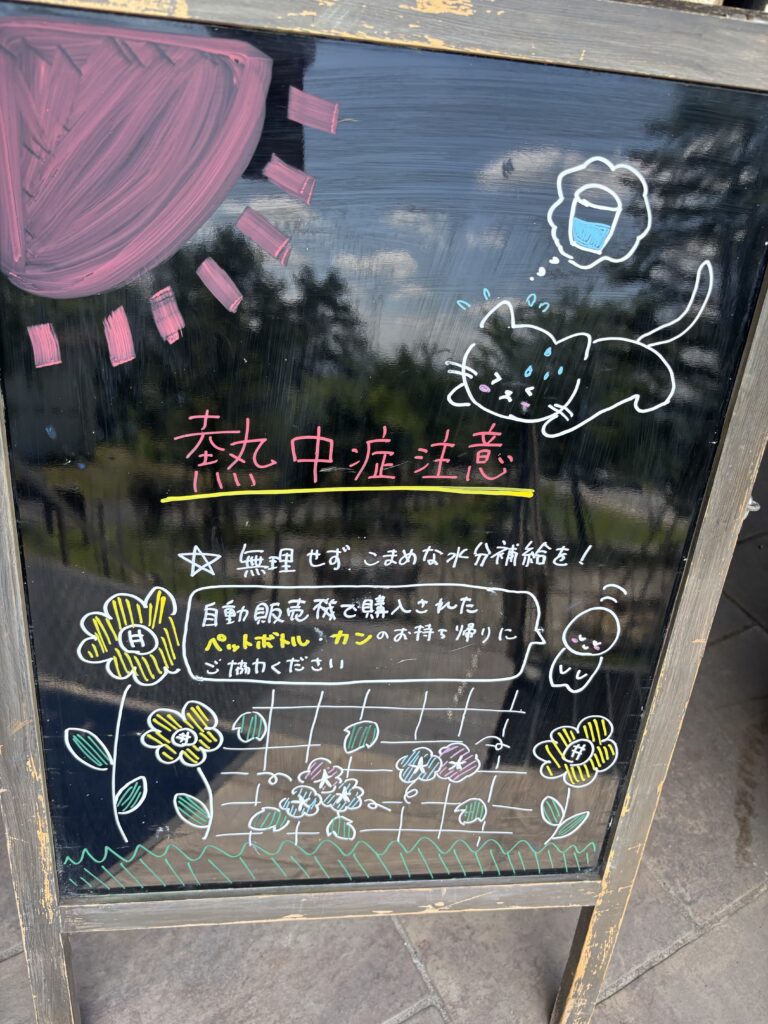 熱中症注意
☆ 無理せず こまめな水分補給を!
自動販売機で購入された
ペットボトル・カンのお持ち帰りに
ご協力ください